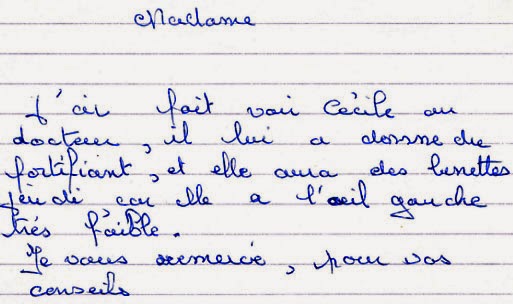 Madame
J'ai fait voir Cécile au
docteur, il lui a donné du
fortifiant, et elle aura des lunettes
jeudi car elle a l'œil gauche
trés faible.
Je vous remercie, pour vos
conseils